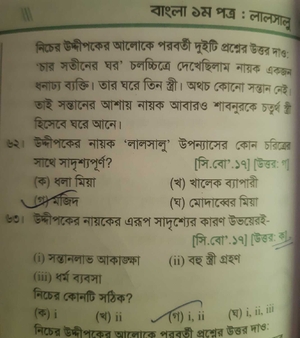 বাংলা ১ম পত্র : লালসালু
নিচের উদ্দীপকের আলোকে পরবর্তী দুইটি প্রশ্নের উত্তর দাও:
'চার সতীনের ঘর' চলচ্চিত্রে দেখেছিলাম নায়ক একজন
ধনাঢ্য ব্যক্তি। তার ঘরে তিন স্ত্রী। অথচ কোনো সন্তান নেই।
তাই সন্তানের আশায় নায়ক আবারও শাবনুরকে চতুর্থ স্ত্রী
হিসেবে ঘরে আনে।
৬২। উদ্দীপকের নায়ক 'লালসালু' উপন্যাসের কোন চরিত্রের
সাথে সাদৃশ্যপূর্ণ? [সি.বো.'১৭] [উত্তর: গ]
(ক) ধলা মিয়া (খ) খালেক ব্যাপারী
(গ) মজিদ (ঘ) মোদাব্বের মিয়া
৬৩। উদ্দীপকের নায়কের এরূপ সাদৃশ্যের কারণ উভয়েরই-
[সি.বো.'১৭] [উত্তর: ক]
(i) সন্তানলাভ আকাঙ্ক্ষা (ii) বহু স্ত্রী গ্রহণ
(iii) ধর্ম ব্যবসা
নিচের কোনটি সঠিক?
(ক) i (খ) ii (গ) i, ii (ঘ) i, ii, iii
নিচের উদ্দীপকের আলোকে পরবর্তী প্রশ্নের উত্তর দাও: